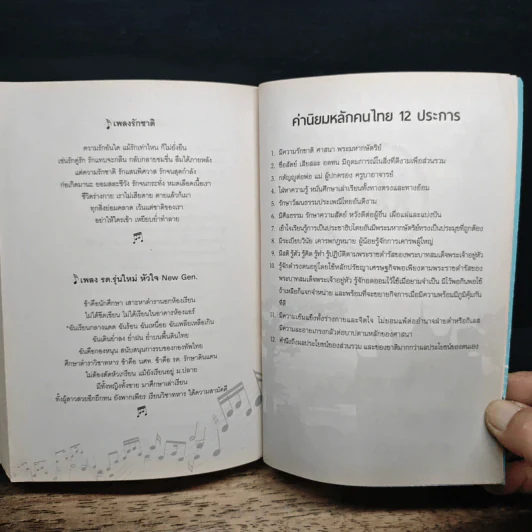 เพลงรักชาติ
ความรักอันใด แม้รักเท่าไหน ก็ไม่ยั่งยืน
เช่นรักคู่รัก รักแทบจะกลืน กลับกลายขมขื่น ลืมได้ภายหลัง
แต่ความรักชาติ รักแสนพิศวาส รักจนสุดกำลัง
ก่อเกิดมานะ ยอมสละชีวัง รักจนกระทั่ง หมดเลือดเนื้อเรา
ชีวิตร่างกาย เราไม่เสียดาย ตายแล้วก็เผา
ทุกสิ่งย่อมคลาด เว้นแต่ชาติของเรา
อย่าให้ใครเข้า เหยียบย่ำทำลาย
เพลง รด.รุ่นใหม่ หัวใจ New Gen.
ข้าคือนักศึกษา เสาะหาตำรานอกห้องเรียน
ไม่ได้ขีดเขียน ไม่ได้เรียนในอาคารห้องแอร์
ฉันเรียนกลางแดด ฉันร้อน ฉันเหนื่อย ฉันเพลียเหลือเกิน
ฉันเดินย่ำลง ย่ำฝน ย่ำบนพื้นดินไทย
ฉันคือกองหนุน สนับสนุนการรบของกองทัพไทย
ศึกษาตำราวิชาทหาร ข้าคือ นศท. ข้าคือ รด. รักษาดินแดน
ไม่ต้องตัดหัวเกรียน แม้ยังเรียนอยู่ ม.ปลาย
มีทั้งหญิงทั้งชาย มาศึกษาเล่าเรียน
ทั้งผู้สาวสวยอีกอีกทน ยังพากเพียร เรียนวิชาทหาร ได้ความสามัคคี
ค่านิยมหลักคนไทย 12 ประการ
1. มีความรักชาติ ศาสนา พระมหากษัตริย์
2. ซื่อสัตย์ เสียสละ อดทน มีอุดมการณ์ในสิ่งที่ดีงามเพื่อส่วนรวม
3. กตัญญูต่อพ่อ แม่ ผู้ปกครอง ครูบาอาจารย์
4. ใฝ่หาความรู้ หมั่นศึกษาเล่าเรียนทั้งทางตรงและทางอ้อม
5. รักษาวัฒนธรรมประเพณีไทยอันดีงาม
6. มีศีลธรรม รักษาความสัตย์ หวังดีต่อผู้อื่น เผื่อแผ่และแบ่งปัน
7. เข้าใจเรียนรู้การเป็นประชาธิปไตยอันมีพระมหากษัตริย์ทรงเป็นประมุขที่ถูกต้อง
8. มีระเบียบวินัย เคารพกฎหมาย ผู้น้อยรู้จักการเคารพผู้ใหญ่
9. มีสติ รู้ตัว รู้คิด รู้ทำ รู้ปฏิบัติตามพระราชดำรัสของพระบาทสมเด็จพระเจ้าอยู่หัว
10. รู้จักดำรงตนอยู่โดยใช้หลักปรัชญาเศรษฐกิจพอเพียงตามพระราชดำรัสของ
พระบาทสมเด็จพระเจ้าอยู่หัว รู้จักอดออมไว้ใช้เมื่อยามจำเป็น มีไว้พอกินพอใช้
ถ้าเหลือก็แจกจำหน่าย และพร้อมที่จะขยายกิจการเมื่อมีความพร้อมมีภูมิคุ้มกัน
ที่ดี
11. มีความเข้มแข็งทั้งร่างกายและจิตใจ ไม่ยอมแพ้ต่ออำนาจฝ่ายต่ำหรือกิเลส
มีความละอายเกรงกลัวต่อบาปตามหลักของศาสนา
12. คำนึงถึงผลประโยชน์ของส่วนรวม และของชาติมากกว่าผลประโยชน์ของตนเอง